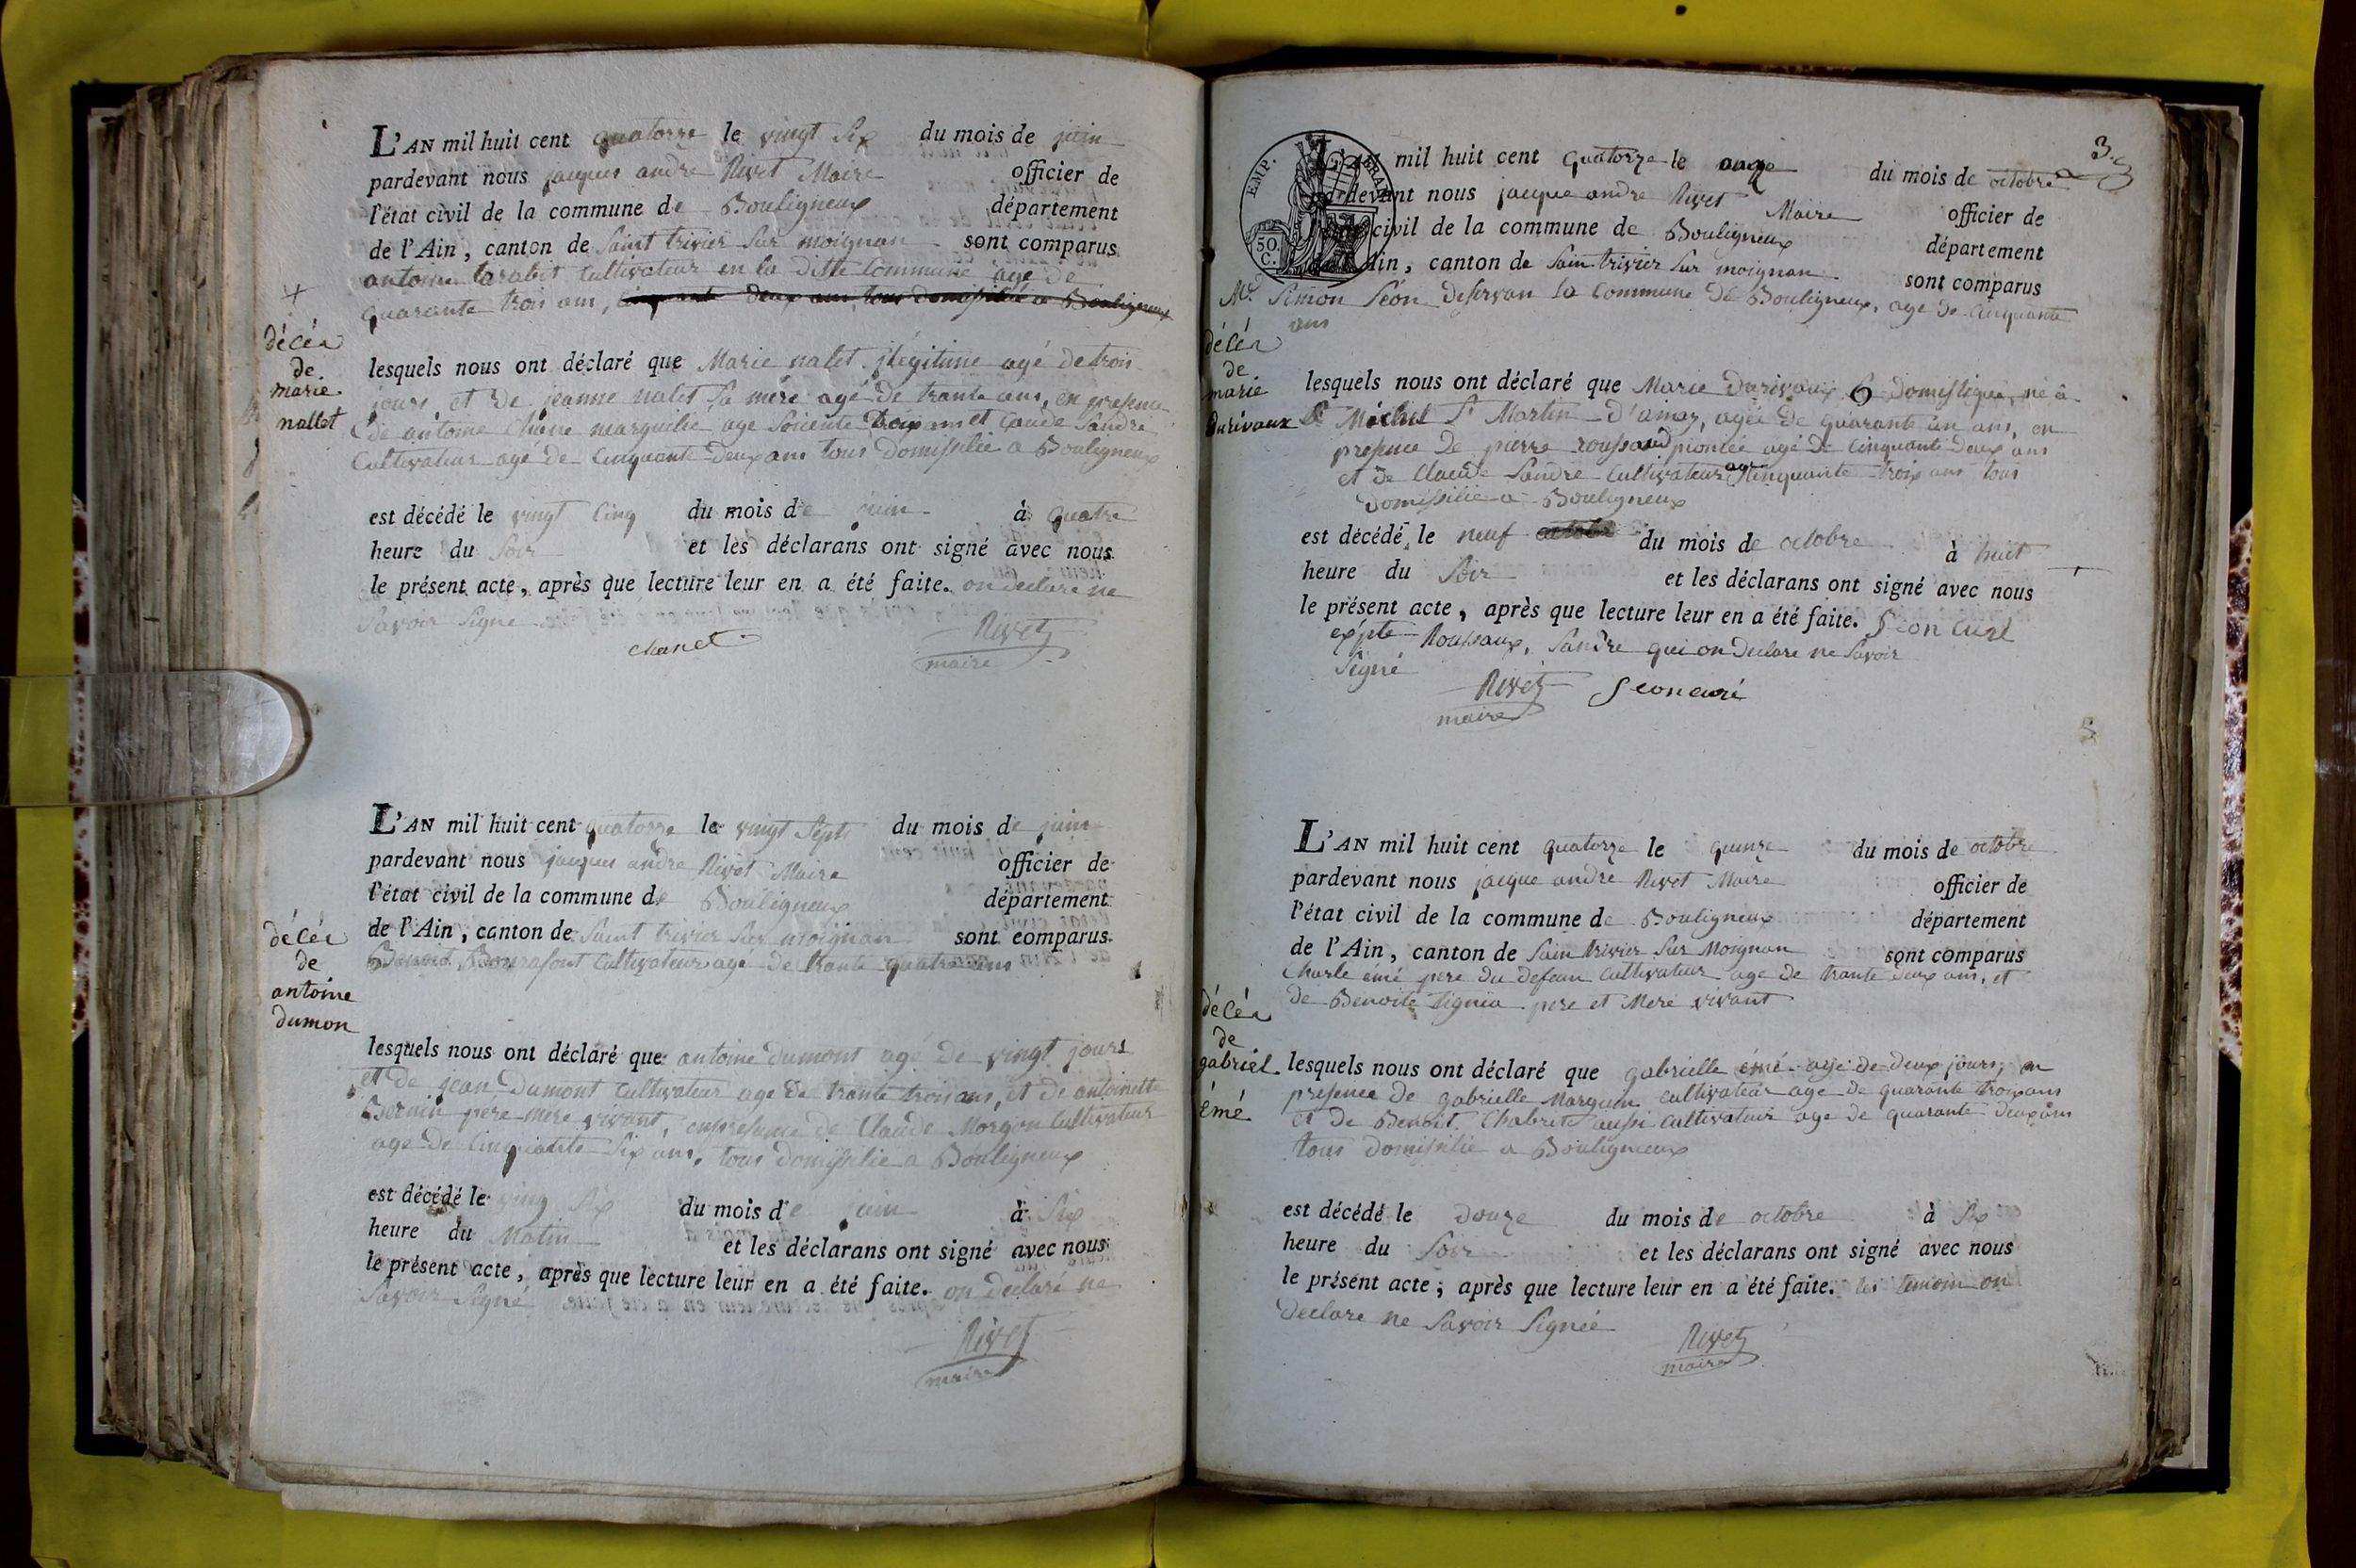 L'AN mil huit cent quatorze le vingt six du mois de juin
pardevant nous jacques andre Rivet Maire officier de
l'état civil de la commune de Bouligneux département
de l'Ain, canton de Saint trivier sur moignan sont comparus
antoine tarabit Cultivateur en la ditte Commune agé de
quarante trois ans, cinquante deux ans tous domissilié a Bouligneux
+
décéa
de
marie
nallet
lesquels nous ont déclaré que Marie nalet ilegitime agé de trois
jours et de jeanne nalet sa mére agé de trante ans, en presence
de antoine Chane marguilié age soicente trois ans et Caude Sandre
Cultivateur agé de Cinquante deux ans tous domissilié a Bouligneux
est décédé le vingt Cinq du mois de juin à quatre
heure du Soir et les déclarans ont signé avec nous
le présent acte, après que lecture leur en a été faite. on declare ne
Savoir Signé
chanet Rivet
maire
L'AN mil huit cent quatorze le vingt Sept du mois de juin
pardevant nous jacques andre Rivet Maire officier de
l'état civil de la commune de Bouligneux département
de l'Ain, canton de Saint trivier sur moignan sont comparus
Benoit Cultivateur age de trante quatre ans
décéa
de
antoine
dumon
lesquels nous ont déclaré que antoine dumont agé de vingt jours
et de jean Dumont Cultivateur age de trante trois ans, et de antoinette
Bernin pere mere vivant, en presence de Claude Morgon Cultivateur
age de Cinquante Six ans, tous domissilie a Bouligneux
est décédé le ving Six du mois de juin à Six
heure du Matin et les déclarans ont signé avec nous
le présent acte, après que lecture leur en a été faite. on declaré ne
Savoir Signé
Rivet
maire
3
EMP. FRAN
50.
C.
L'AN mil huit cent quatorze le onze du mois de octobre
pardevant nous jacque andre Rivet Maire officier de
l'état civil de la commune de Bouligneux département
de l'Ain, canton de Sain trivier Sur moignan sont comparus
Mr. Simon Séon deservan la Commune de Bouligneux, age de Cinquante
ans
décéa
de
marie
durivaux
lesquels nous ont déclaré que Marie Durivaux domestique, né à
St Martin d'ainay, agée de quarante un ans, en
presence de pierre roussaud piontée agé de Cinquante deux ans
et de Claude Sandre Cultivateur age Cinquante trois ans tous
domissilie a Bouligneux
est décédé le neuf du mois de octobre à huit
heure du Soir et les déclarans ont signé avec nous
le présent acte, après que lecture leur en a été faite. Séon Curé
exsepte Roussaux, Sandre qui on declare ne Savoir
Signé
Rivet Séon curé
maire
L'AN mil huit cent quatorze le quinze du mois de octobre
pardevant nous jacque andre Rivet Maire officier de
l'état civil de la commune de Bouligneux département
de l'Ain, canton de Sain trivier Sur Moignan sont comparus
Charle émé pere du defean Cultivateur age de trante deux ans, et
de Benoite pere et Mere vivant
décéa
de
gabriel
émé
lesquels nous ont déclaré que gabrielle émé age de deux jours, en
presence de gabrielle Marguin Cultivateur age de quarante trois ans
et de Benoit Chabret aussi Cultivateur age de quarante deux ans
tous domissilie a Bouligneux
est décédé le douze du mois de octobre à Six
heure du Soir et les déclarans ont signé avec nous
le présent acte, après que lecture leur en a été faite. les temoin on
declare ne Savoir Signée
Rivet
maire